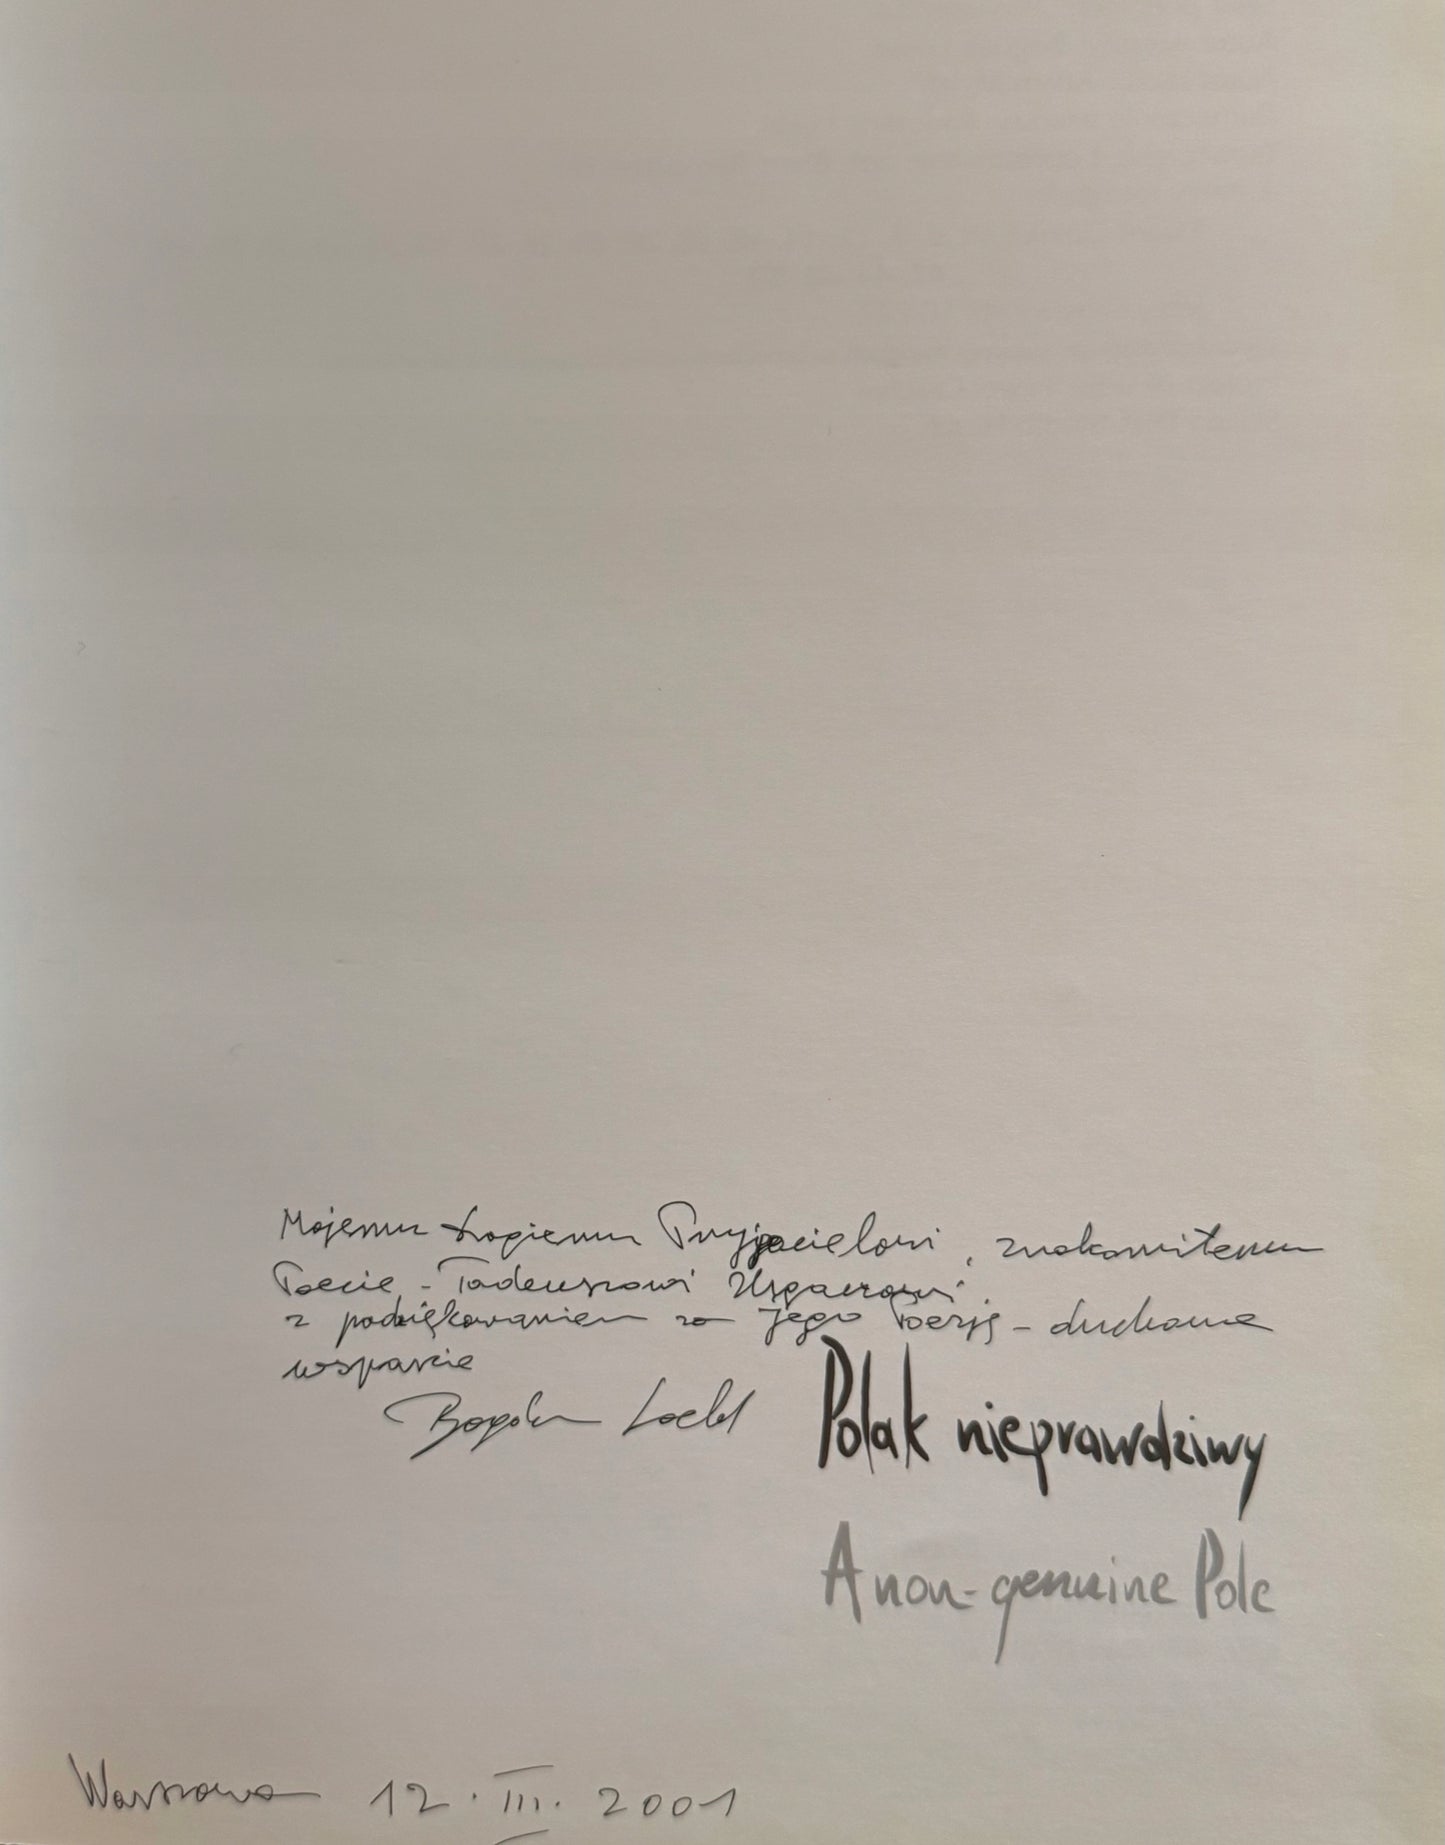 Mojemu drogiemu Przyjacielowi, znakomitemu
Poecie - Tadeuszowi
z podziękowaniem za Jego Poezję - duchowe
wsparcie
Bogdan Loebl
Polak nieprawdziwy
A non-genuine Pole
Warszawa 12. III. 2001